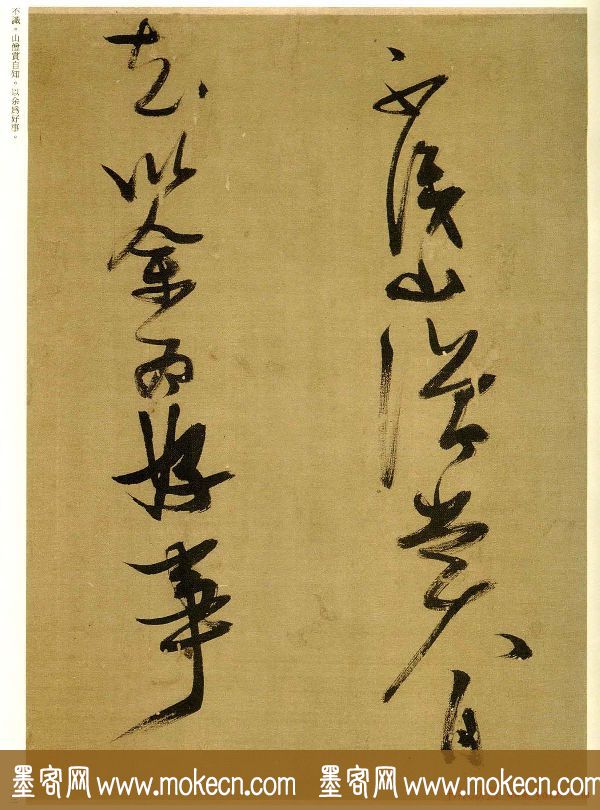 不識山僧賞自
知以余為好事
不識。山僧賞自知。以余為好事。
墨客网 www.mokecn.com 墨客网 www.mokecn.com